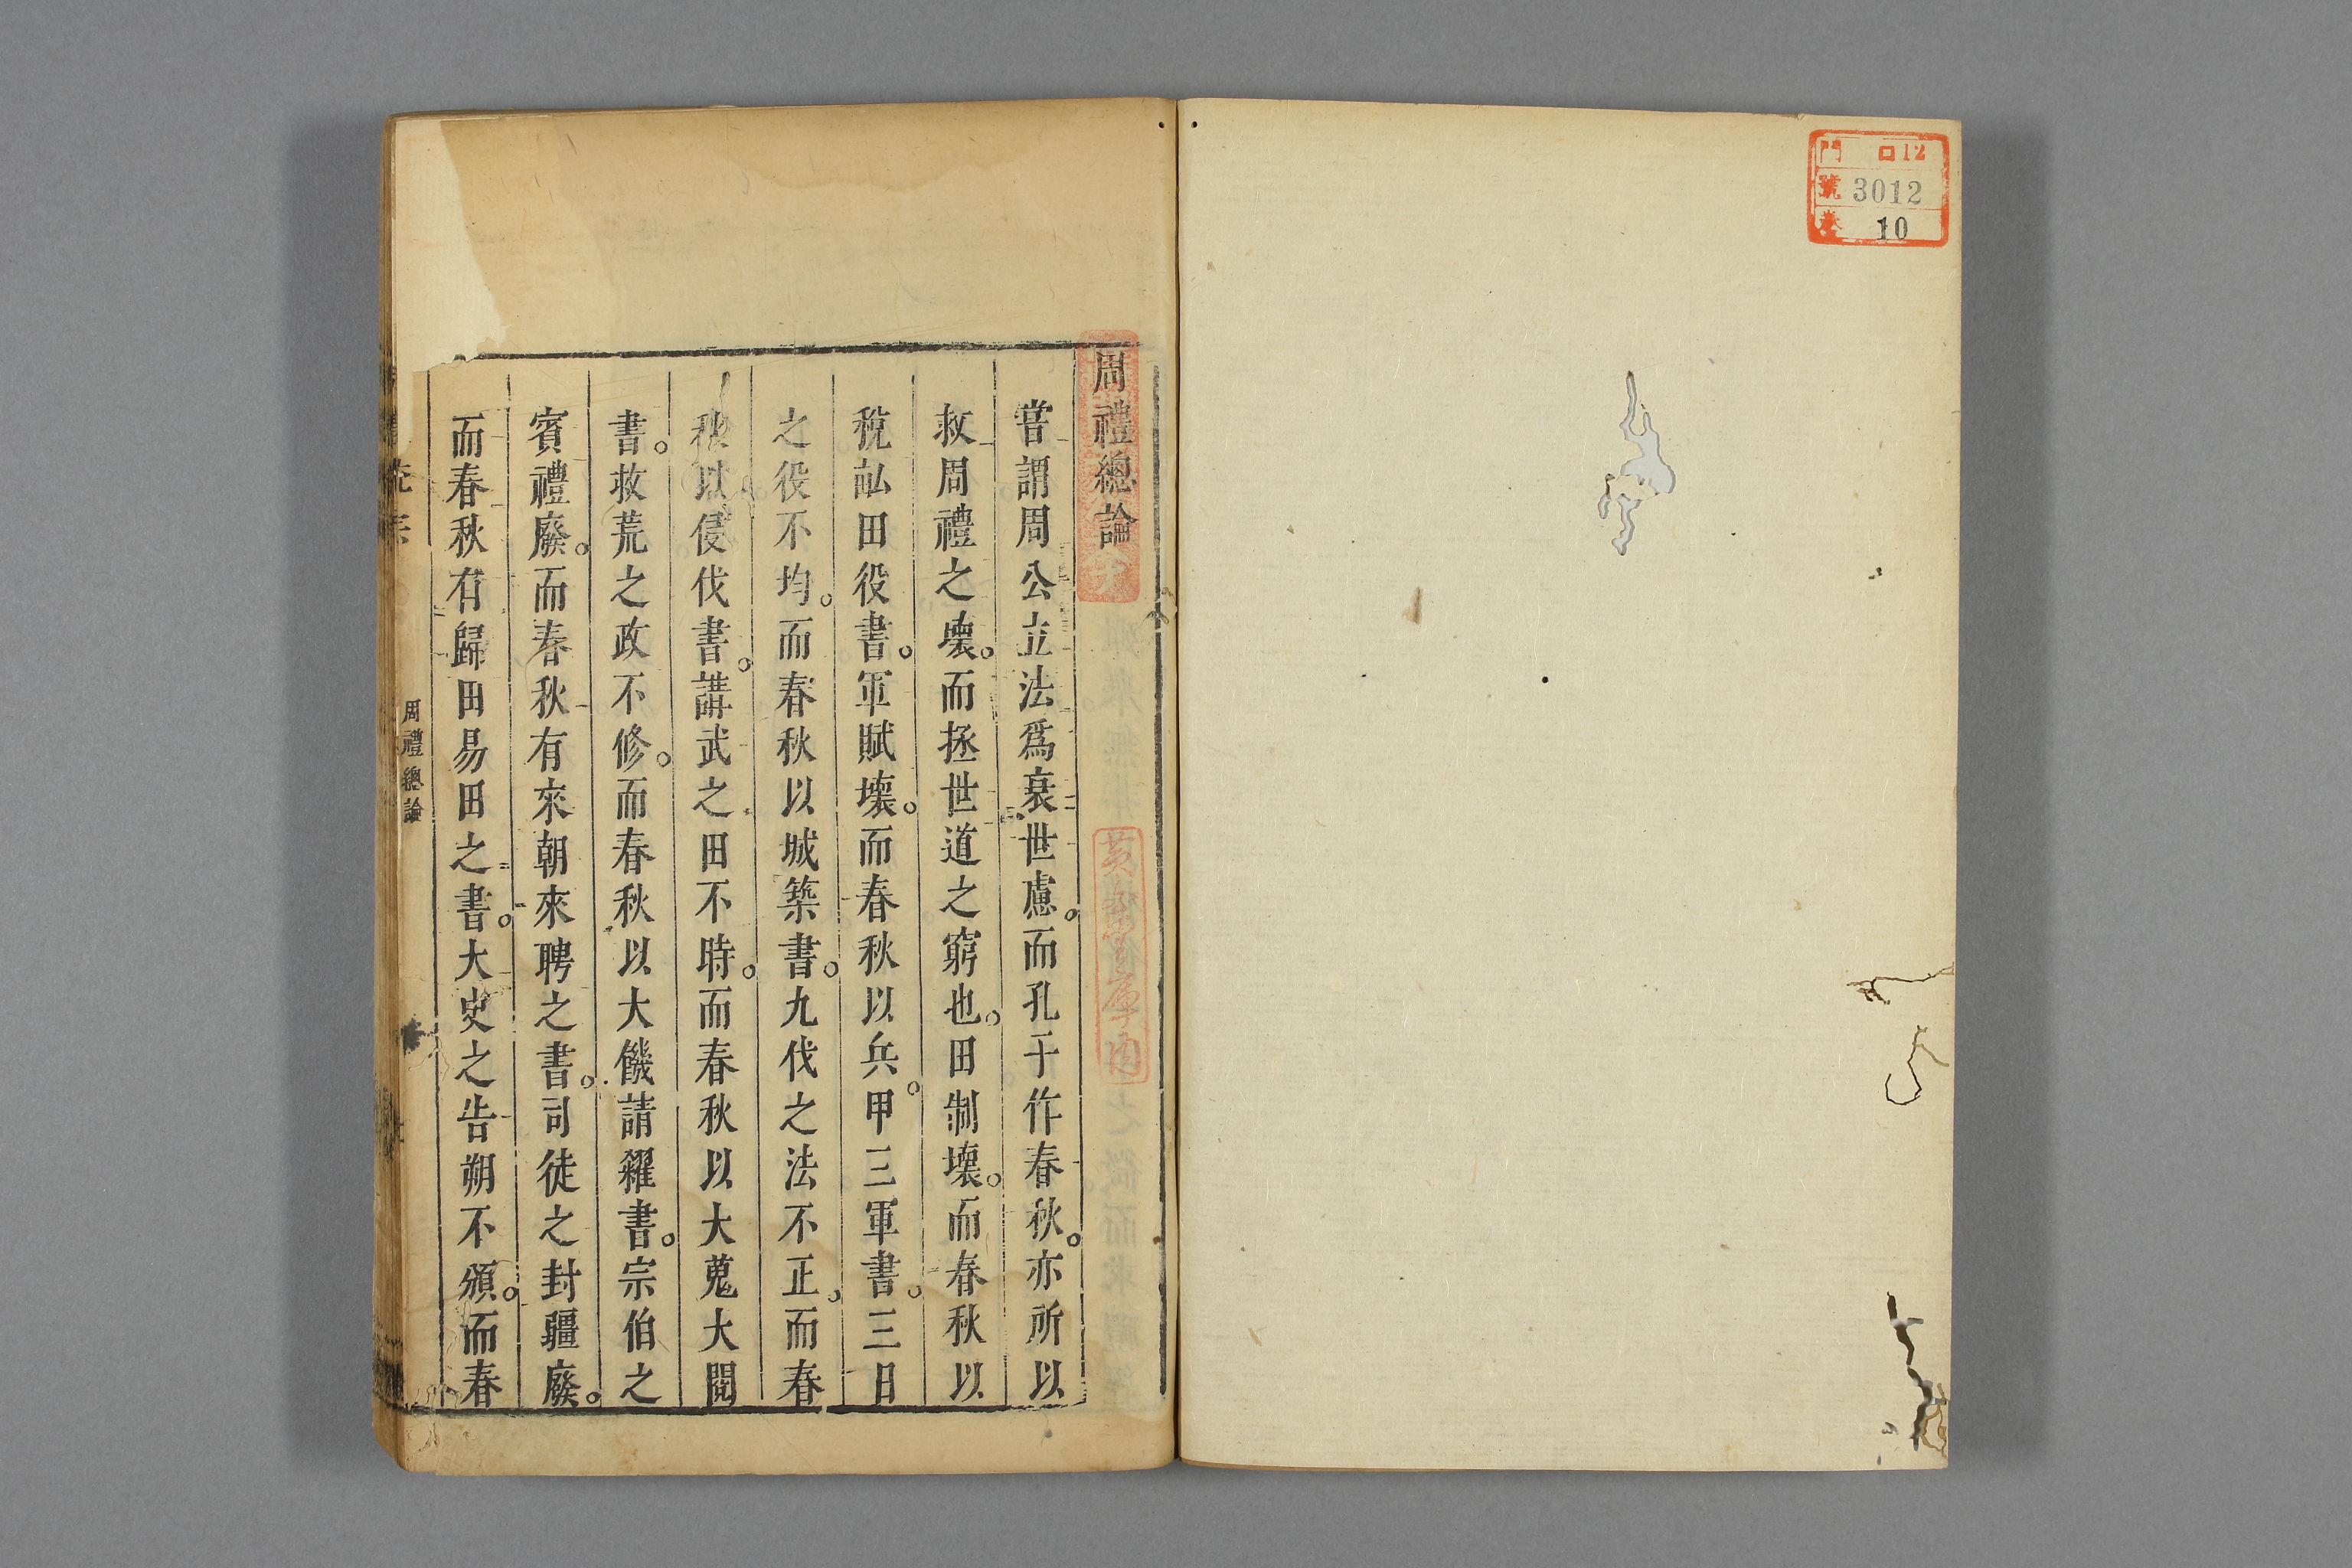 門 ロ12
號 3012
卷 10
周禮總論
嘗謂周公立法爲衰世慮。而孔子作春秋。亦所以
救周禮之壞。而拯世道之窮也。田制壞。而春秋以
稅畆田役書。軍賦壞。而春秋以兵。甲三軍書。三日
之役不均。而春秋以城築書。九伐之法不正。而春
秋以侵伐書。講武之田不時。而春秋以大蒐大閱
書。救荒之政不修。而春秋以大饑請糴書。宗伯之
賓禮廢。而春秋有來朝來聘之書。司徒之封疆廢。
而春秋有歸田易田之書。大史之告朔不頒。而春
周禮總論